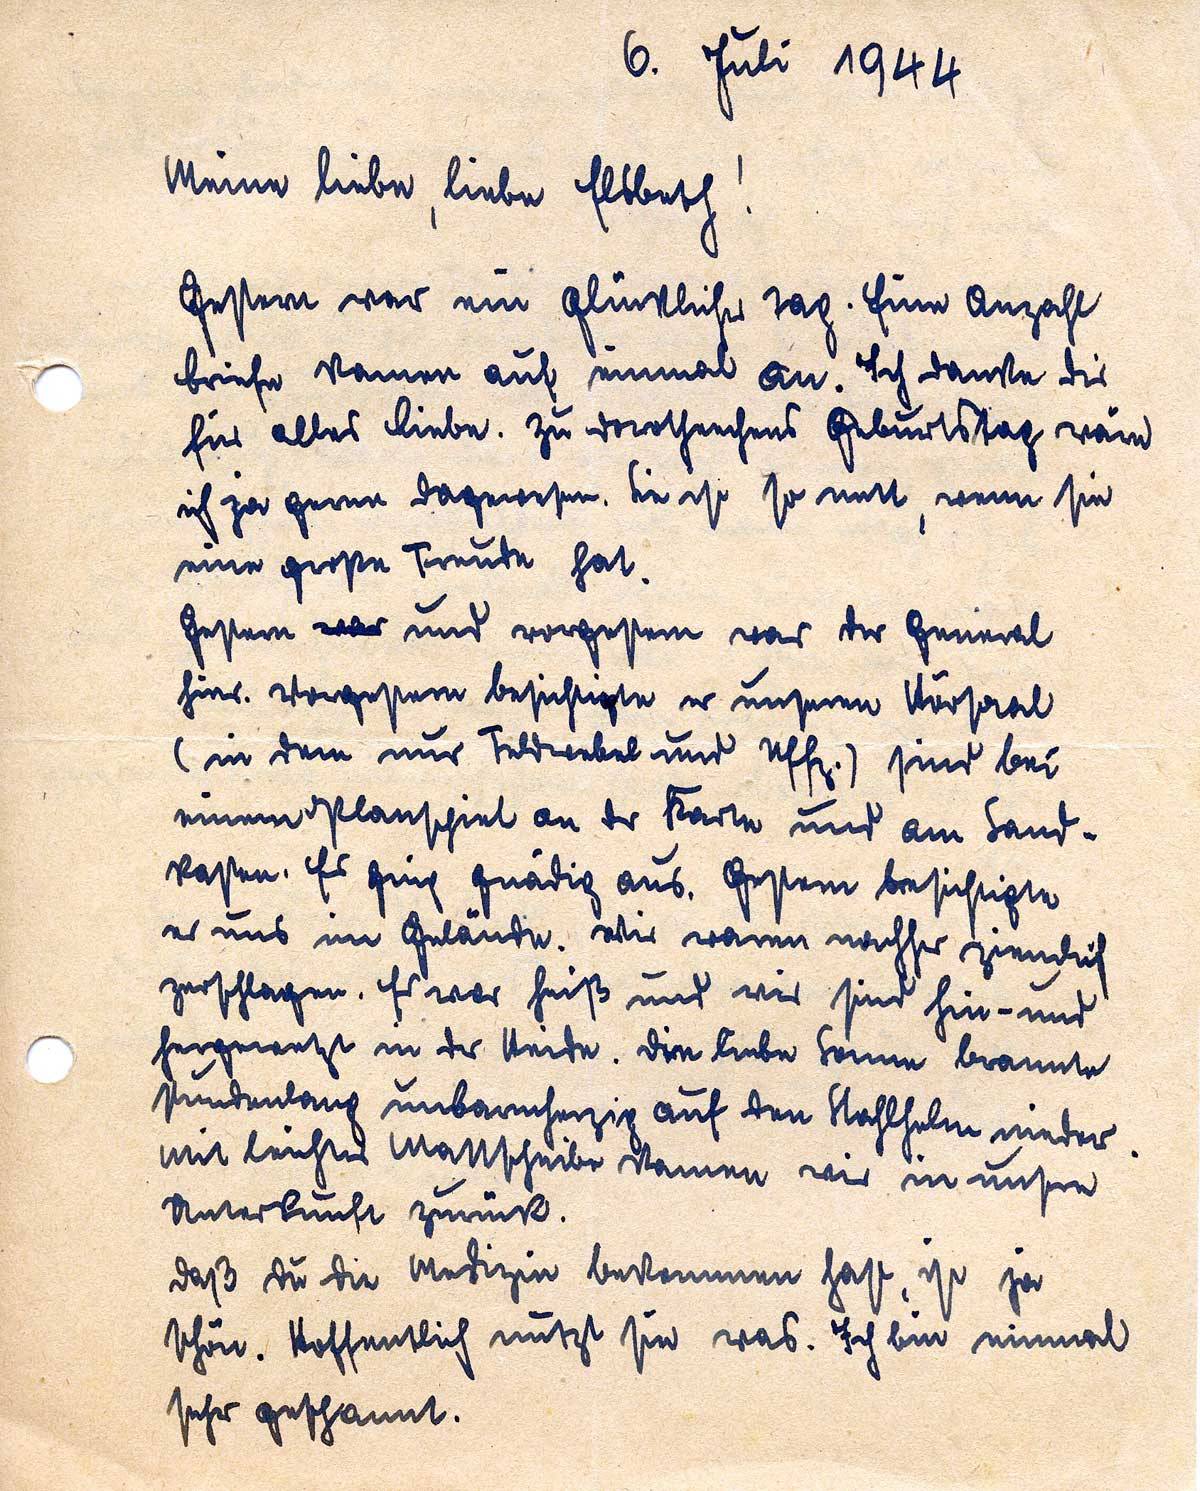 6. Juli 1944
Meine liebe, liebe Elsbeth!
Gestern war ein glücklicher Tag. Eine Anzahl
Briefe kamen auf einmal an. Ich danke Dir
für alles Liebe. Zu Dorotheechens Geburtstag wäre
ich ja gerne dagewesen. Sie ist so nett, wenn sie
eine große Freude hat.
Gestern war und vorgestern war der General
hier. Vorgestern besichtigte er unseren Hörsaal
(in dem nur Feldwebel und Uffz.) sind bei
einem Planspiel an der Karte und am Sand-
kasten. Es ging gnädig aus. Gestern besichtigte
er uns im Gelände. Wir waren nachher ziemlich
zerschlagen. Es war heiß und wir sind hin- und
hergewetzt in der Heide. Die liebe Sonne brannte
stundenlang unbarmherzig auf den Stahlhelm nieder.
Mit leichter Mattscheibe kamen wir in unsre
Unterkunft zurück.
Daß Du die Medizin bekommen hast, ist ja
schön. Hoffentlich nutzt sie was. Ich bin einmal
sehr gespannt.